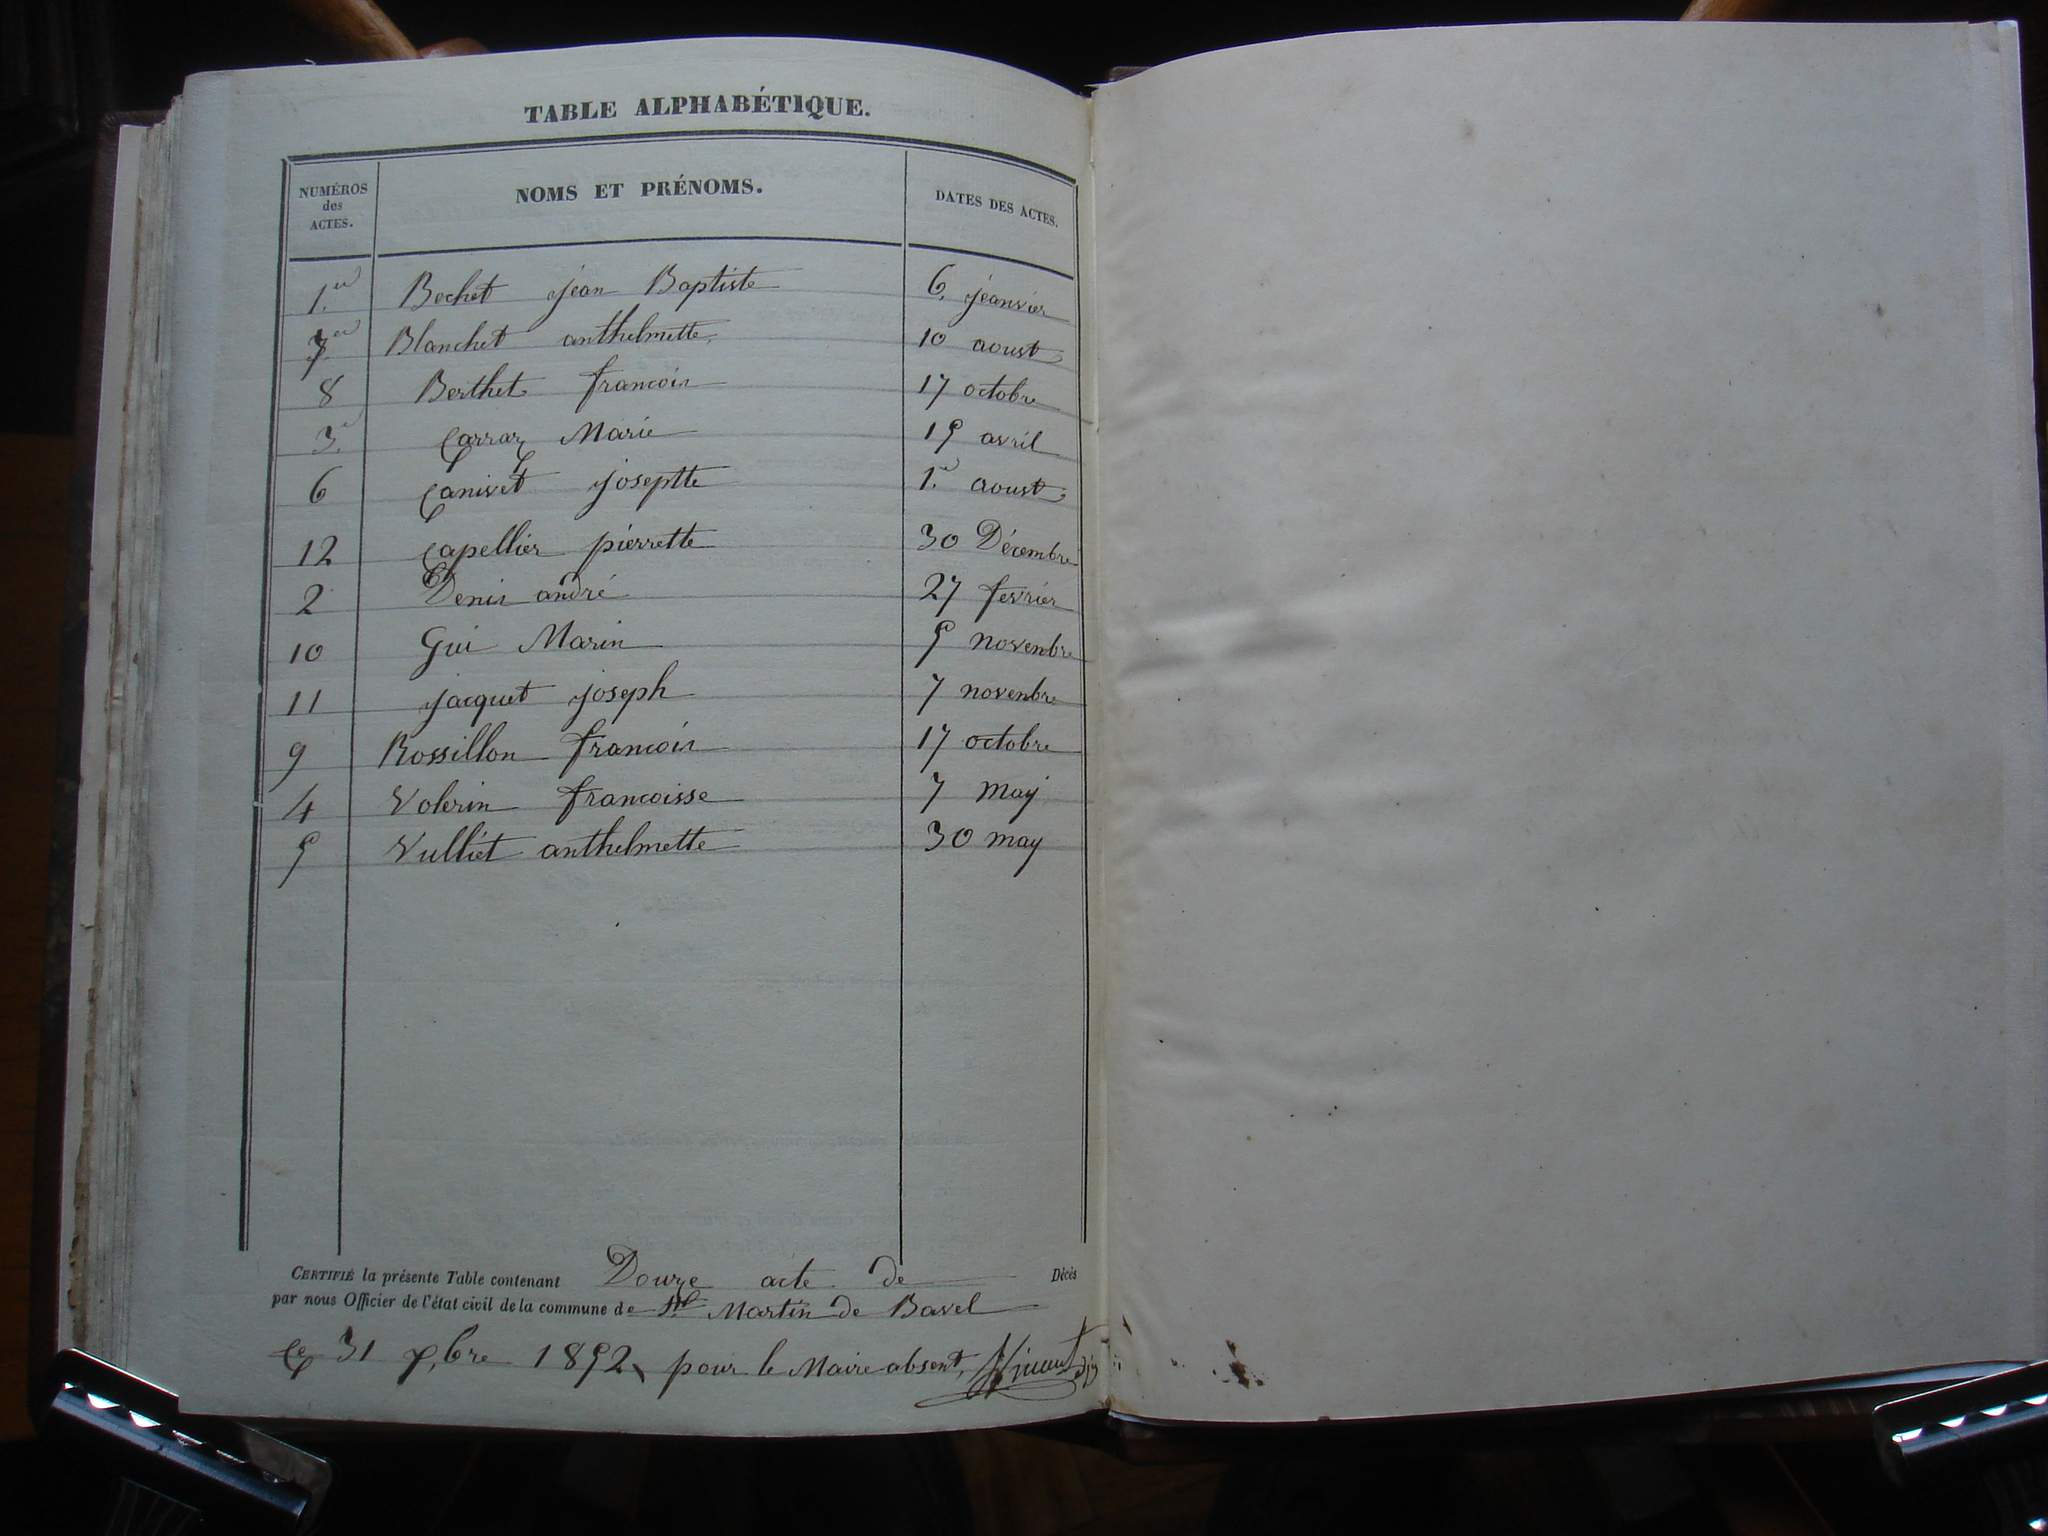 TABLE ALPHABÉTIQUE.
NUMÉROS des ACTES. NOMS ET PRÉNOMS. DATES DES ACTES.
1.er Bechet jean Baptiste 6. jeanvier
7 Blanchet anthelmette 10 aoust
8 Berthet francois 17 octobre
3.e Carraz Marie 15 avril
6 Canivet joseptte 1.er aoust
12 Capellier pierrette 30 Décembre
2 Denis andré 27 fevrier
10 Gui Marin 5 novenbre
11 jacquet joseph 7 novenbre
9 Rossillon francois 17 octobre
4 Volerin francoisse 7 may
5 Vulliet anthelmette 30 may
CERTIFIÉ la présente Table contenant Douze acte de Décès
par nous Officier de l'état civil de la commune de St Martin de Bavel
Ce 31 Xbre 1852 pour le Maire absent,